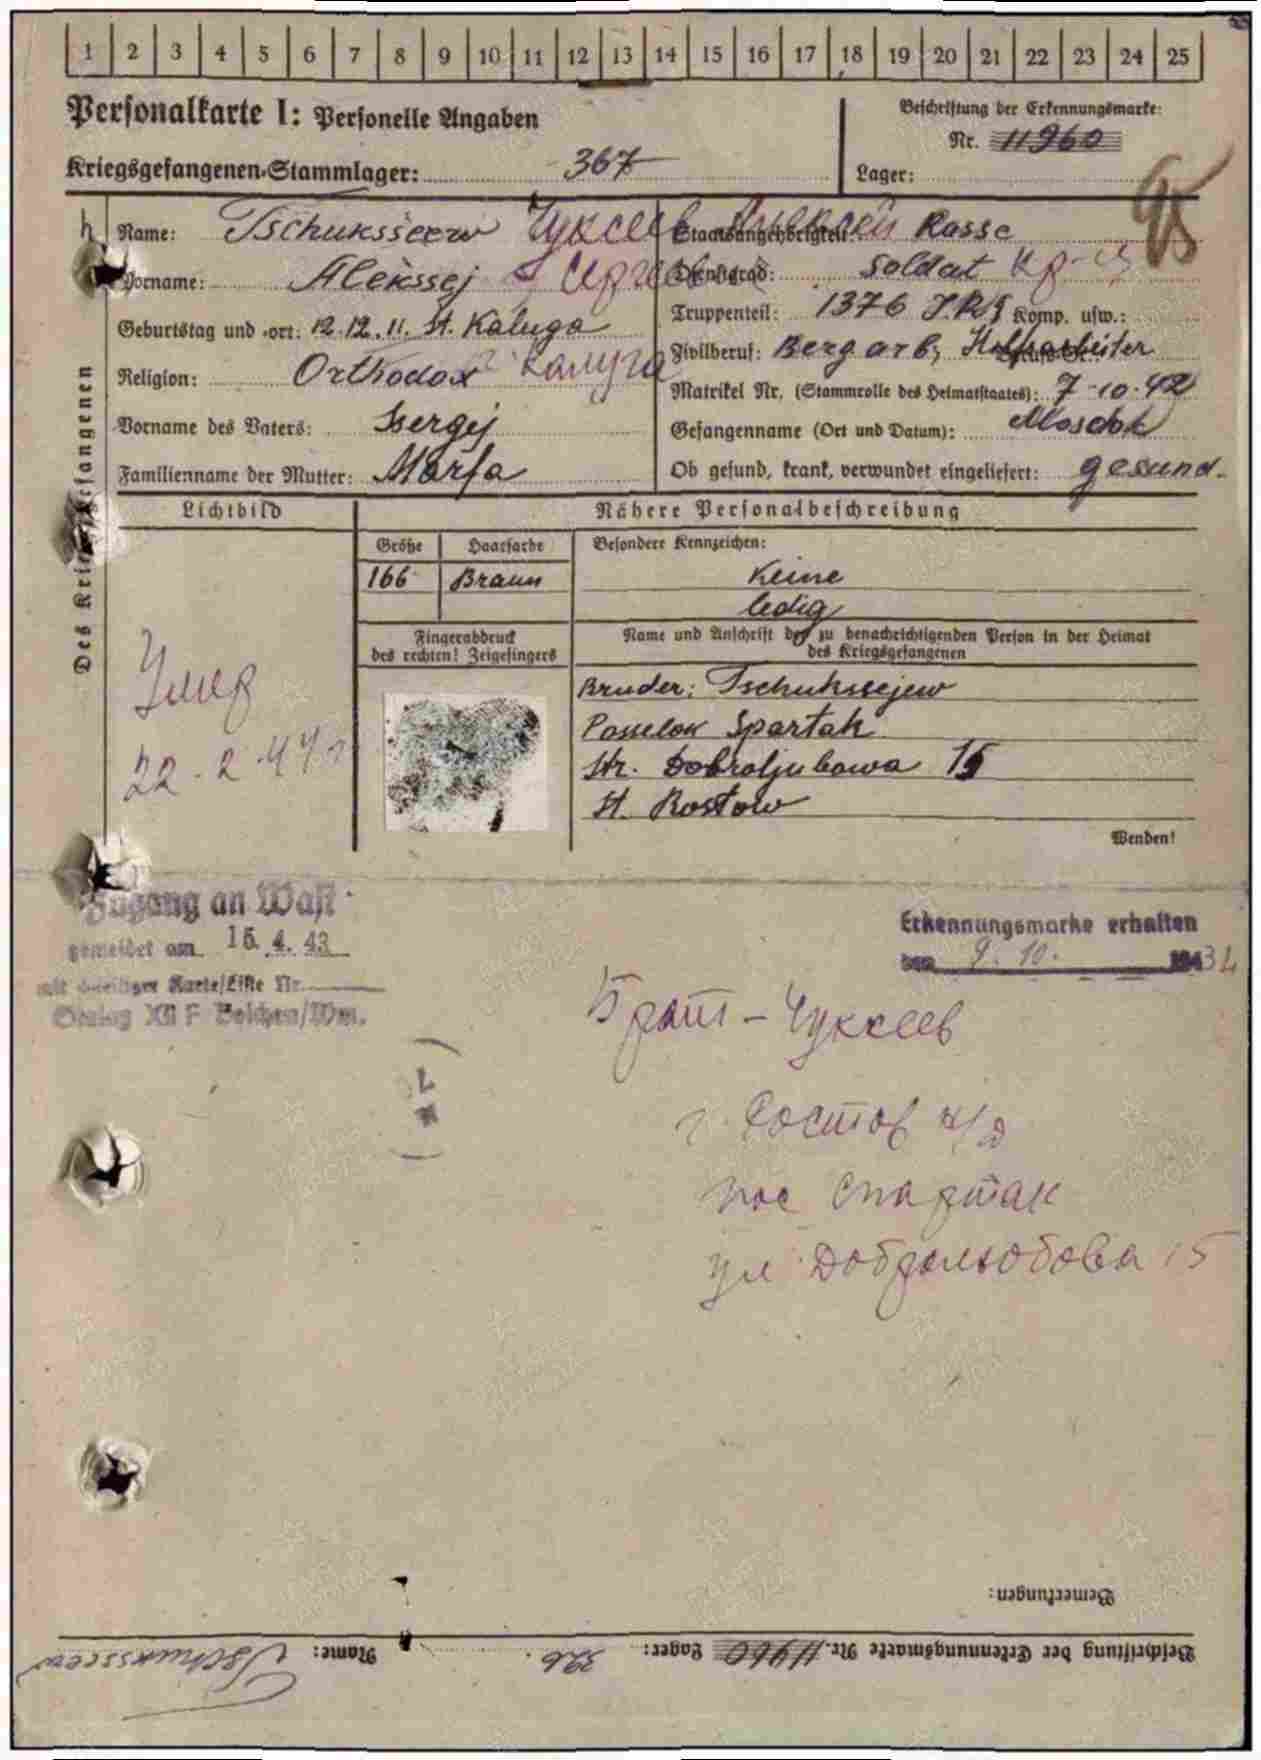 1 2 3 4 5 6 7 8 9 10 11 12 13 14 15 16 17 18 19 20 21 22 23 24 25
Personalkarte I: Personelle Angaben
Beschriftung der Erkennungsmarke:
Nr. 11960
Kriegsgefangenen-Stammlager: 367
Lager:
95
Des Kriegsgefangenen
Name: Tschuksseew Чуксеев Алексей
Staatsangehörigkeit: Russe
Vorname: Alekssej Сергеевич
Dienstgrad: Soldat Кр-ц
Geburtstag und -ort: 12.12.11. St. Kaluga
Truppenteil: 1376 J.R. Komp. usw.:
г. Калуга
Religion: Orthodox
Zivilberuf: Bergarb, Hilfsarbeiter
Matrikel Nr. (Stammrolle des Heimatstaates): 7-10-42
Vorname des Vaters: Ssergej
Gefangenname (Ort und Datum): Mosdok
Familienname der Mutter: Marfa
Ob gesund, krank, verwundet eingeliefert: gesund.
Lichtbild
Nähere Personalbeschreibung
Größe Haarfarbe Besondere Kennzeichen:
166 Braun Keine
ledig
Fingerabdruck
des rechten! Zeigefingers
Name und Anschrift der zu benachrichtigenden Person in der Heimat
des Kriegsgefangenen
Умер
22-2-44г
Bruder: Tschukssejew
Posselok Spartak
Str. Dobroljubowa 15
St. Rostow
Wenden!
Zugang an Wast
gemeldet am 15.4.43
mit Karte/Liste Nr.
Stalag XII F Bolchen/Wm.
Erkennungsmarke erhalten
den 9.10. 194
Брат - Чуксеев
г. Ростов н/Д
пос Спартак
ул. Добролюбова 15
Bemerkungen:
Beschriftung der Erkennungsmarke Nr. 11960 Lager: 326 Name: Tschuksseew